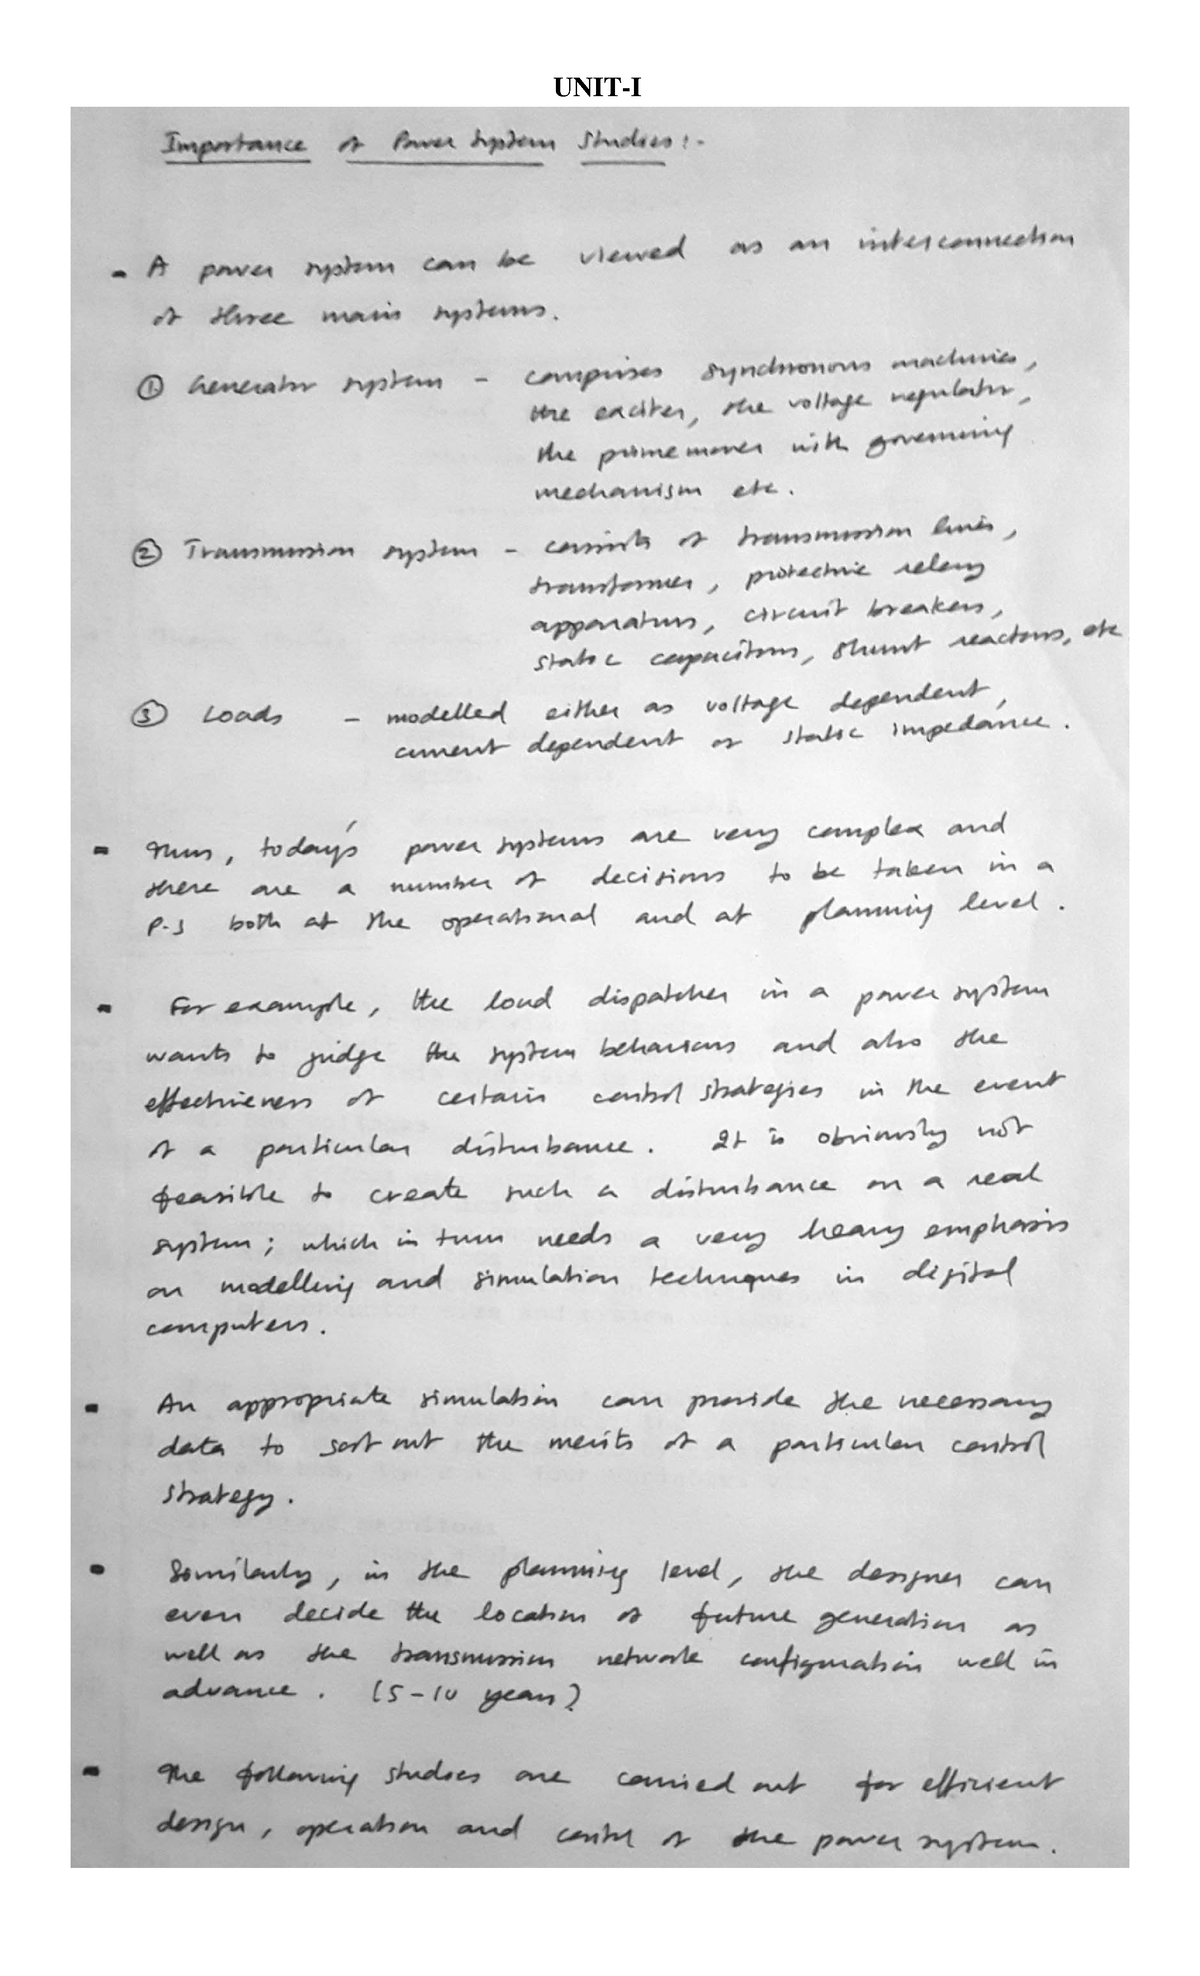 UNIT-I
Importance of Power System Studies:-
- A power system can be viewed as an interconnection
of three main systems.
① Generator system - comprises synchronous machines,
the exciter, the voltage regulator,
the primemover with governing
mechanism etc.
② Transmission system - consists of transmission lines,
transformer, protective relay
apparatus, circuit breakers,
static capacitors, shunt reactors, etc
③ Loads - modelled either as voltage dependent,
current dependent or static impedance.
- Thus, today's power systems are very complex and
there are a number of decisions to be taken in a
P.S both at the operational and at planning level.
- For example, the load dispatcher in a power system
wants to judge the system behaviours and also the
effectiveness of certain control strategies in the event
of a particular disturbance. It is obviously not
feasible to create such a disturbance on a real
system; which in turn needs a very heavy emphasis
on modelling and simulation techniques in digital
computers.
- An appropriate simulation can provide the necessary
data to sort out the merits of a particular control
strategy.
- Similarly, in the planning level, the designer can
even decide the location of future generation as
well as the transmission network configuration well in
advance. (5-10 years)
- The following studies are carried out for efficient
design, operation and control of the power system.